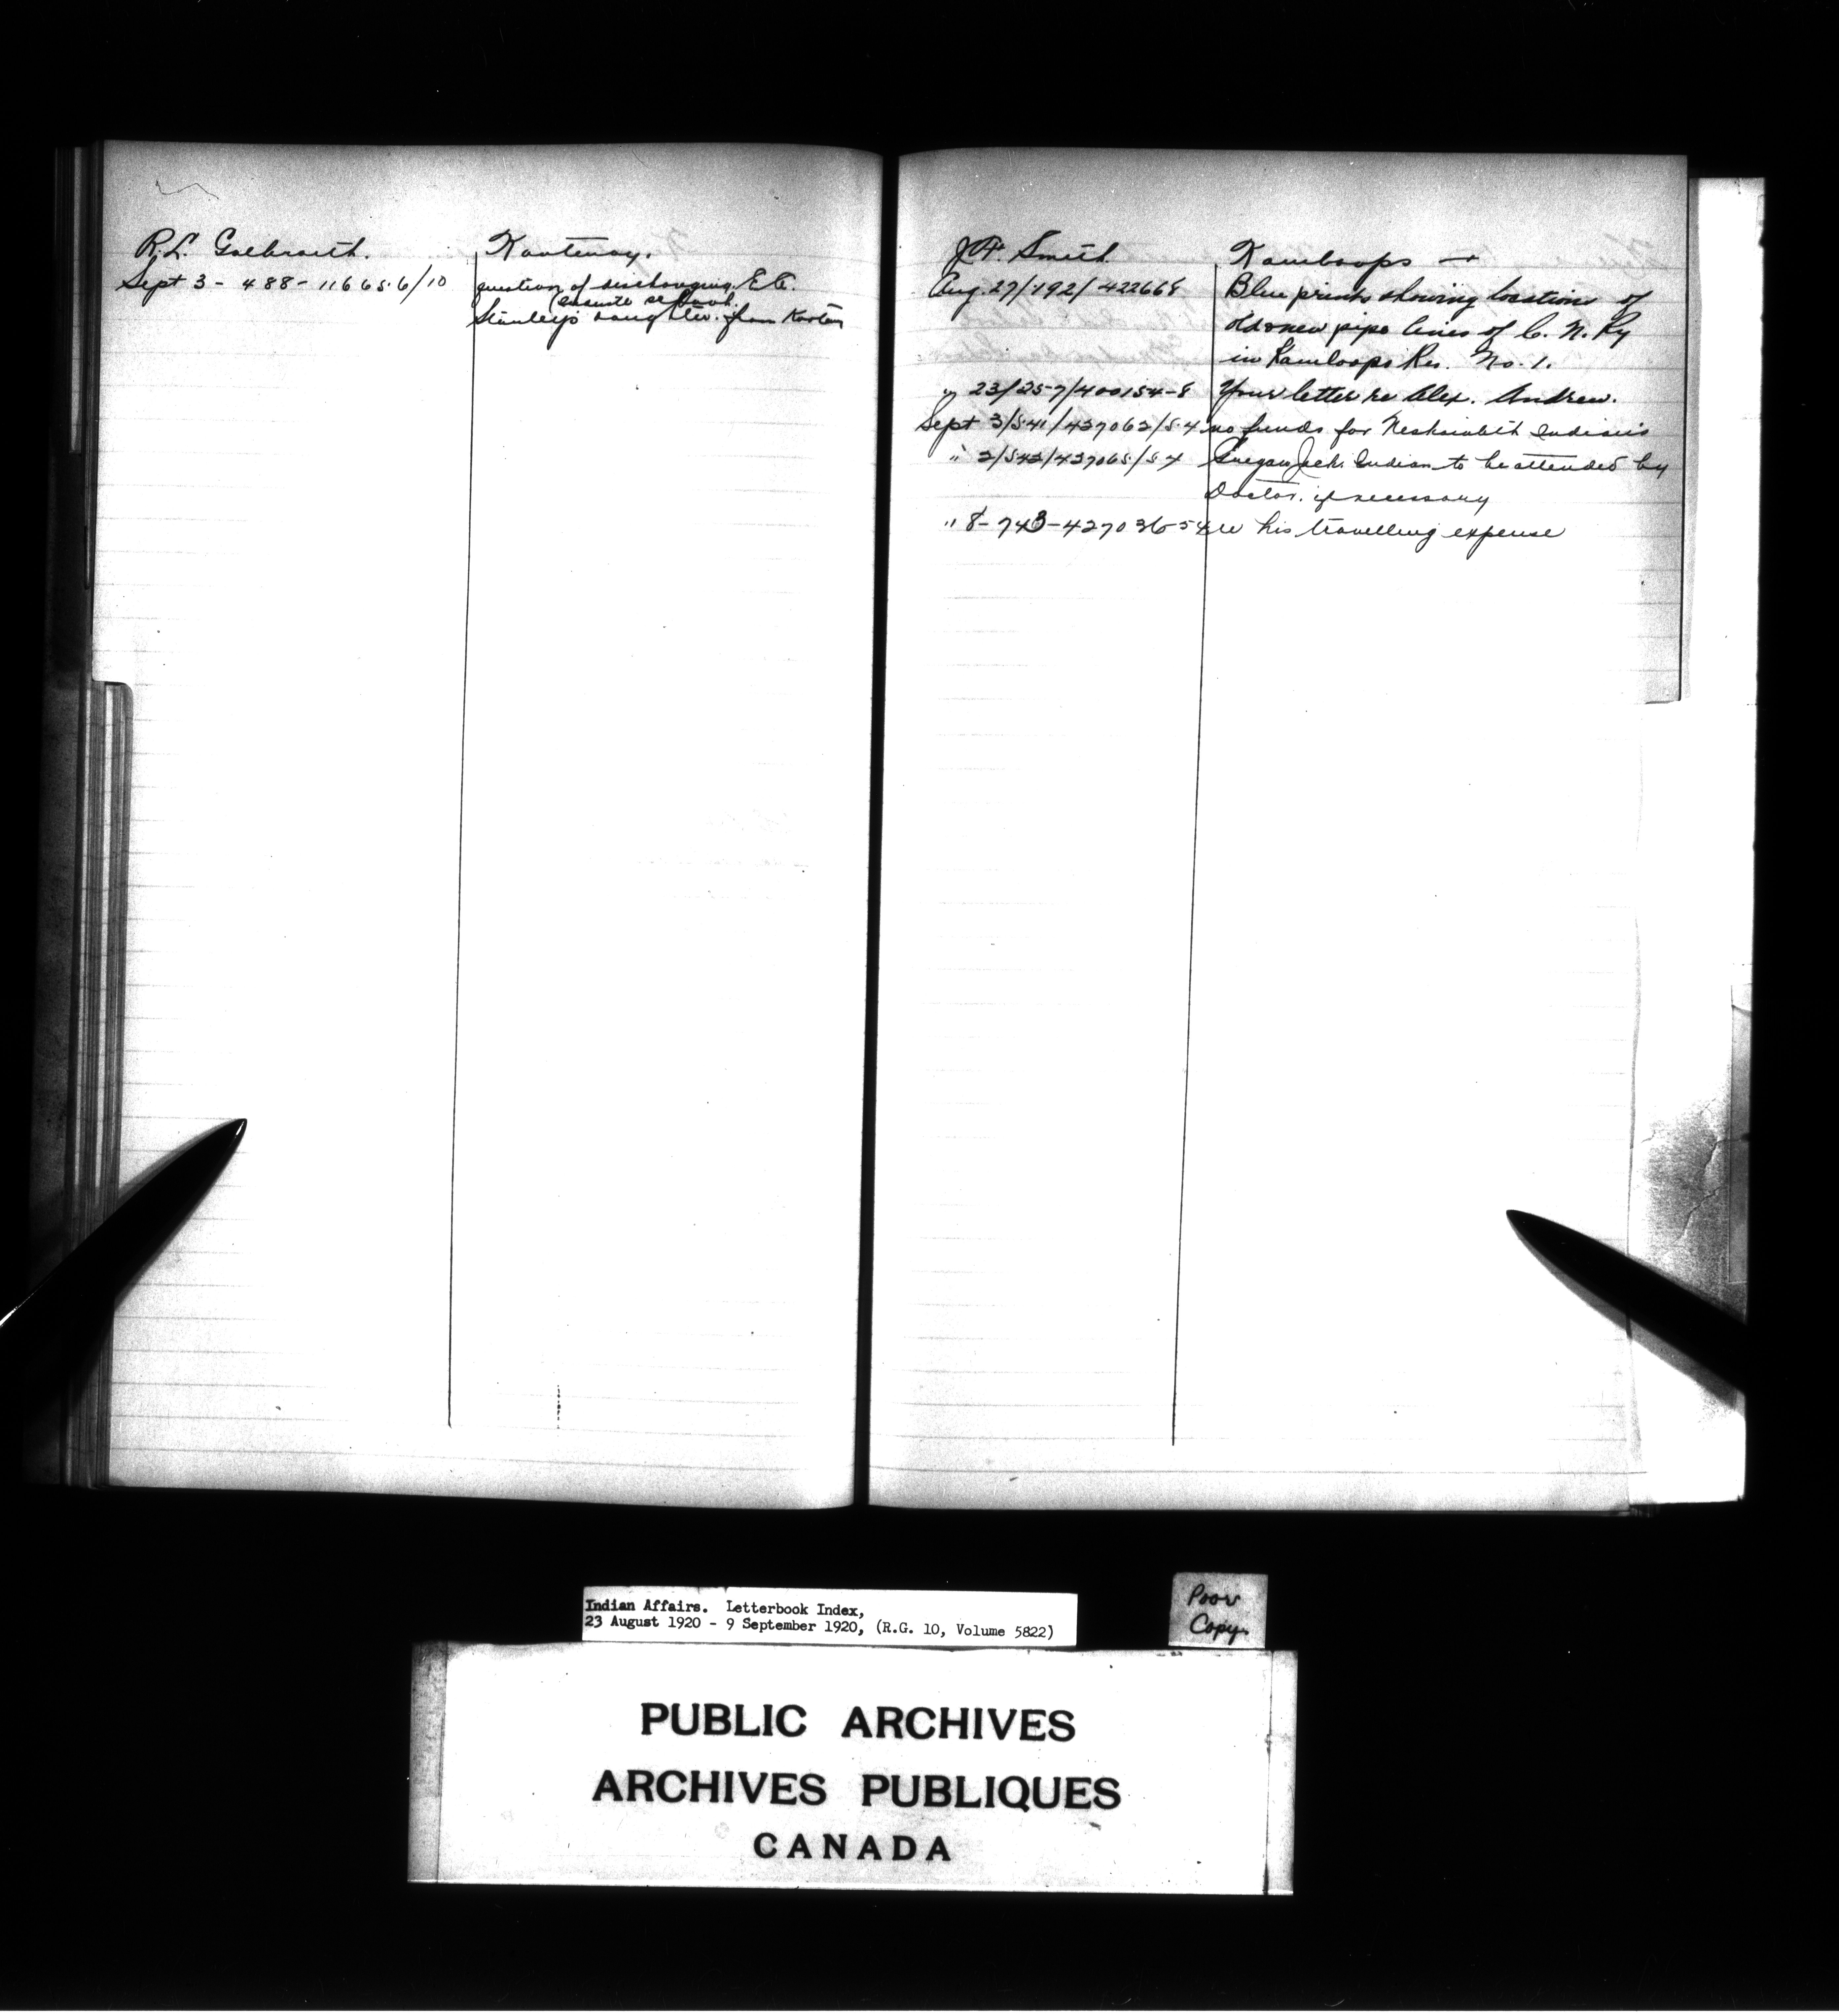 R. L. Galbraith. Kootenay.
Sept 3 - 488 - 116656/10 question of discharging E. C.
(
Stanley's daughter from Kooten
J. F. Smith Kamloops
Aug. 27/192/422668 Blue prints showing locations of
old & new pipe lines of C. N. Ry
in Kamloops Res. No. 1.
" 23/257/400154-8 Your letter re Alex. Andrew.
Sept 3/541/427062/54 no funds for Indians
" 2/542/427065/54 Jack. Indian to be attended by
Doctor. if necessary
" 8-743-427036-54 re his travelling expense
Indian Affairs. Letterbook Index,
23 August 1920 - 9 September 1920, (R.G. 10, Volume 5822)
Poor
Copy.
PUBLIC ARCHIVES
ARCHIVES PUBLIQUES
CANADA